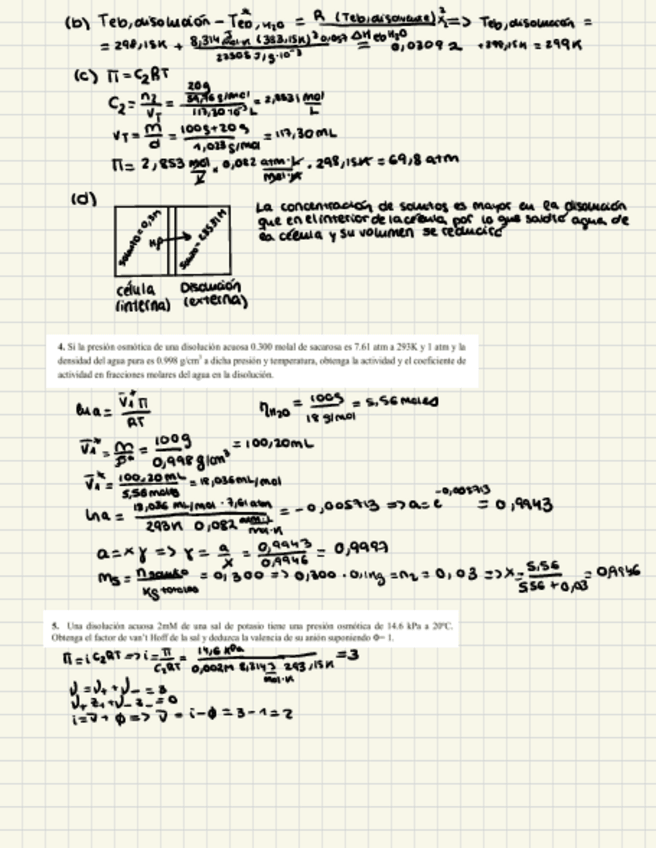 (b) Teb,disolución - Teb,H2O* = R (Teb,disolvente)² x2 => Teb,disolución =
ΔH eb H2O
= 298,15K + 8,314 (383,15K)² 0,057 = 0,0309 2 + 298,15K = 299K
(c) Π = C2RT
C2 = n2/VT = 20g = 2,853 mol/L
VT = m/d = 100g+20g / 1,023 g/mol = 117,30 mL
Π = 2,853 mol/L · 0,082 atm·L/mol·K · 298,15K = 69,8 atm
(d)
La concentración de solutos es mayor en la disolución
que en el interior de la célula, por lo que saldrá agua de
la célula y su volumen se reducirá
soluto=0,3M
soluto=2,853M
célula Disolución
(interna) (externa)
4. Si la presión osmótica de una disolución acuosa 0.300 molal de sacarosa es 7.61 atm a 293K y 1 atm y la
densidad del agua pura es 0.998 g/cm³ a dicha presión y temperatura, obtenga la actividad y el coeficiente de
actividad en fracciones molares del agua en la disolución.
ln a = V̄1* Π / RT
nH2O = 100g / 18 g/mol = 5,56 moles
V̄1* = m/ρ = 100g / 0,998 g/cm³ = 100,20 mL
V̄1* = 100,20 mL / 5,56 moles = 18,036 mL/mol
ln a = 18,036 mL/mol · 7,61 atm / 293K 0,082 = -0,005713 => a = e^-0,005713 = 0,9943
a = x γ => γ = a/x = 0,9943/0,9946 = 0,9997
ms = nsoluto / kg totales = 0,300 => 0,300 · 0,1 kg = n2 = 0,03 => x = 5,56 / 5,56 + 0,03 = 0,9946
5. Una disolución acuosa 2mM de una sal de potasio tiene una presión osmótica de 14.6 kPa a 20ºC.
Obtenga el factor de van't Hoff de la sal y deduzca la valencia de su anión suponiendo Φ= 1.
Π = i C2RT => i = Π / C2RT = 14,6 kPa / 0,002M 8,314 J/mol·K 293,15K = 3
ν = ν+ + ν- = 3
ν+ z+ + ν- z- = 0
i = ν + ϕ => ν = i - ϕ = 3 - 1 = 2